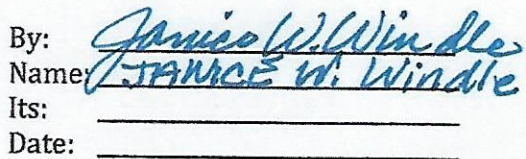 By: Janice W. Windle
Name: JANICE W. Windle
Its:
Date: